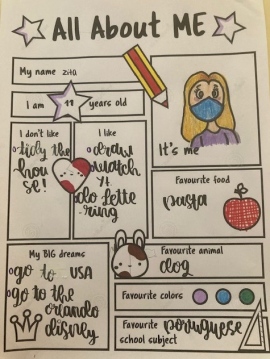 All About ME
My name zita
I am 11 years old
It's me
I don't like
tidy the
house!
I like
draw
watch
yt
do lette
ring
Favourite food
pasta
Favourite animal
dog
My BIG dreams
go to USA
go to the
orlando
disney
Favourite colors
Favourite school subject
poruguese